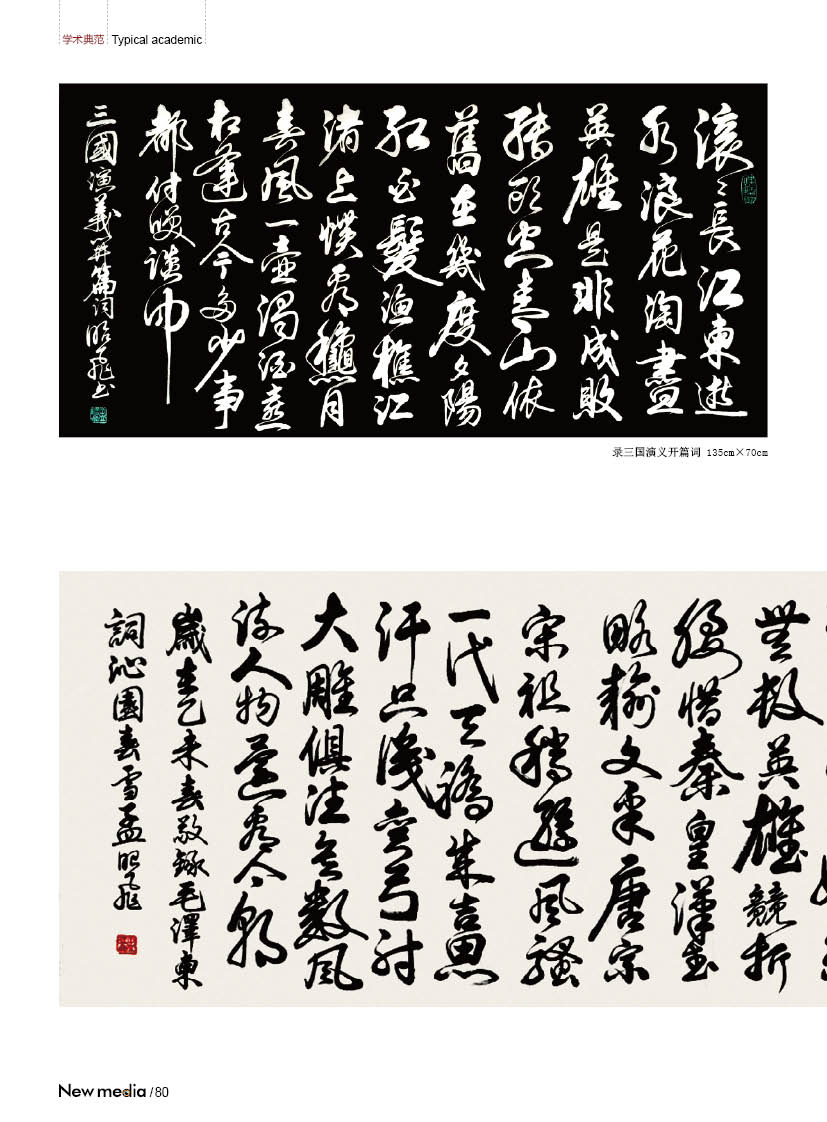 学术典范 Typical academic
滚〻長江東逝
水浪花淘盡
英雄是非成敗
轉頭空青山依
舊在幾度夕陽
紅白髮漁樵江
渚上慣看龝月
春風一壺濁酒喜
相逢古今多少事
都付咲談中
三國演義開篇詞昭飛书
录三国演义开篇词 135cm×70cm
無數英雄競折
腰惜秦皇漢武
略輸文采唐宗
宋祖稍遜風騷
一代天驕成吉思
汗只識彎弓射
大雕俱往矣數風
流人物還看今朝
歲在乙未春敬錄毛澤東
詞沁園春雪孟昭飛
New media /80